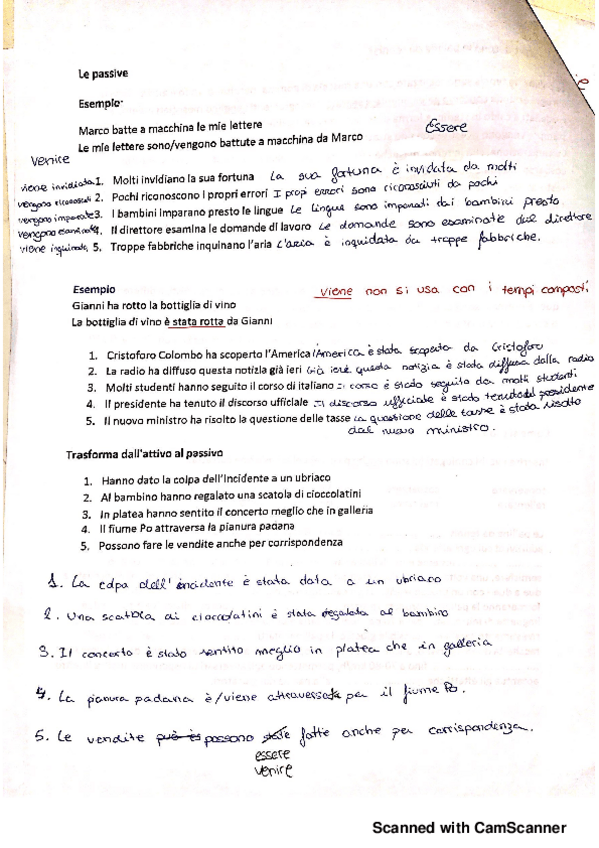 Le passive
Esempio·
Marco batte a macchina le mie lettere
Essere
Le mie lettere sono/vengono battute a macchina da Marco
venire
viene invidiata 1. Molti invidiano la sua fortuna La sua fortuna è invidata da molti
vengono riconosciuti 2. Pochi riconoscono i propri errori I propi errori sono riconosciuti da pochi
vengono imparate 3. I bambini imparano presto le lingue Le lingue sono imparati dai bambini presto
vengono esaminate 4. Il direttore esamina le domande di lavoro Le domande sono esaminate dal direttore
viene inquinata 5. Troppe fabbriche inquinano l'aria L'aria è inquidata da troppe fabbriche.
Esempio
viene non si usa con i tempi composti
Gianni ha rotto la bottiglia di vino
La bottiglia di vino è stata rotta da Gianni
1. Cristoforo Colombo ha scoperto l'America l'America è stata scoperta da Cristoforo
2. La radio ha diffuso questa notizia già ieri Già ieri questa notizia è stata diffusa dalla radio
3. Molti studenti hanno seguito il corso di italiano il corso è stato seguito da molti studenti
4. Il presidente ha tenuto il discorso ufficiale il discorso ufficiale è stato tenuto dal presidente
5. Il nuovo ministro ha risolto la questione delle tasse la questione delle tasse è stata risolto
dal nuovo ministro.
Trasforma dall'attivo al passivo
1. Hanno dato la colpa dell'incidente a un ubriaco
2. Al bambino hanno regalato una scatola di cioccolatini
3. In platea hanno sentito il concerto meglio che in galleria
4. Il fiume Po attraversa la pianura padana
5. Possono fare le vendite anche per corrispondenza
1. La colpa dell'incidente è stata data a un ubriaco
2. Una scatola di cioccolatini è stata regalata al bambino
3. Il concerto è stato sentito meglio in platea che in galleria
4. La pianura padana è/viene attraversata per il fiume Po.
5. Le vendite può es possono state fatte anche per corrispondenza.
essere
venire
Scanned with CamScanner